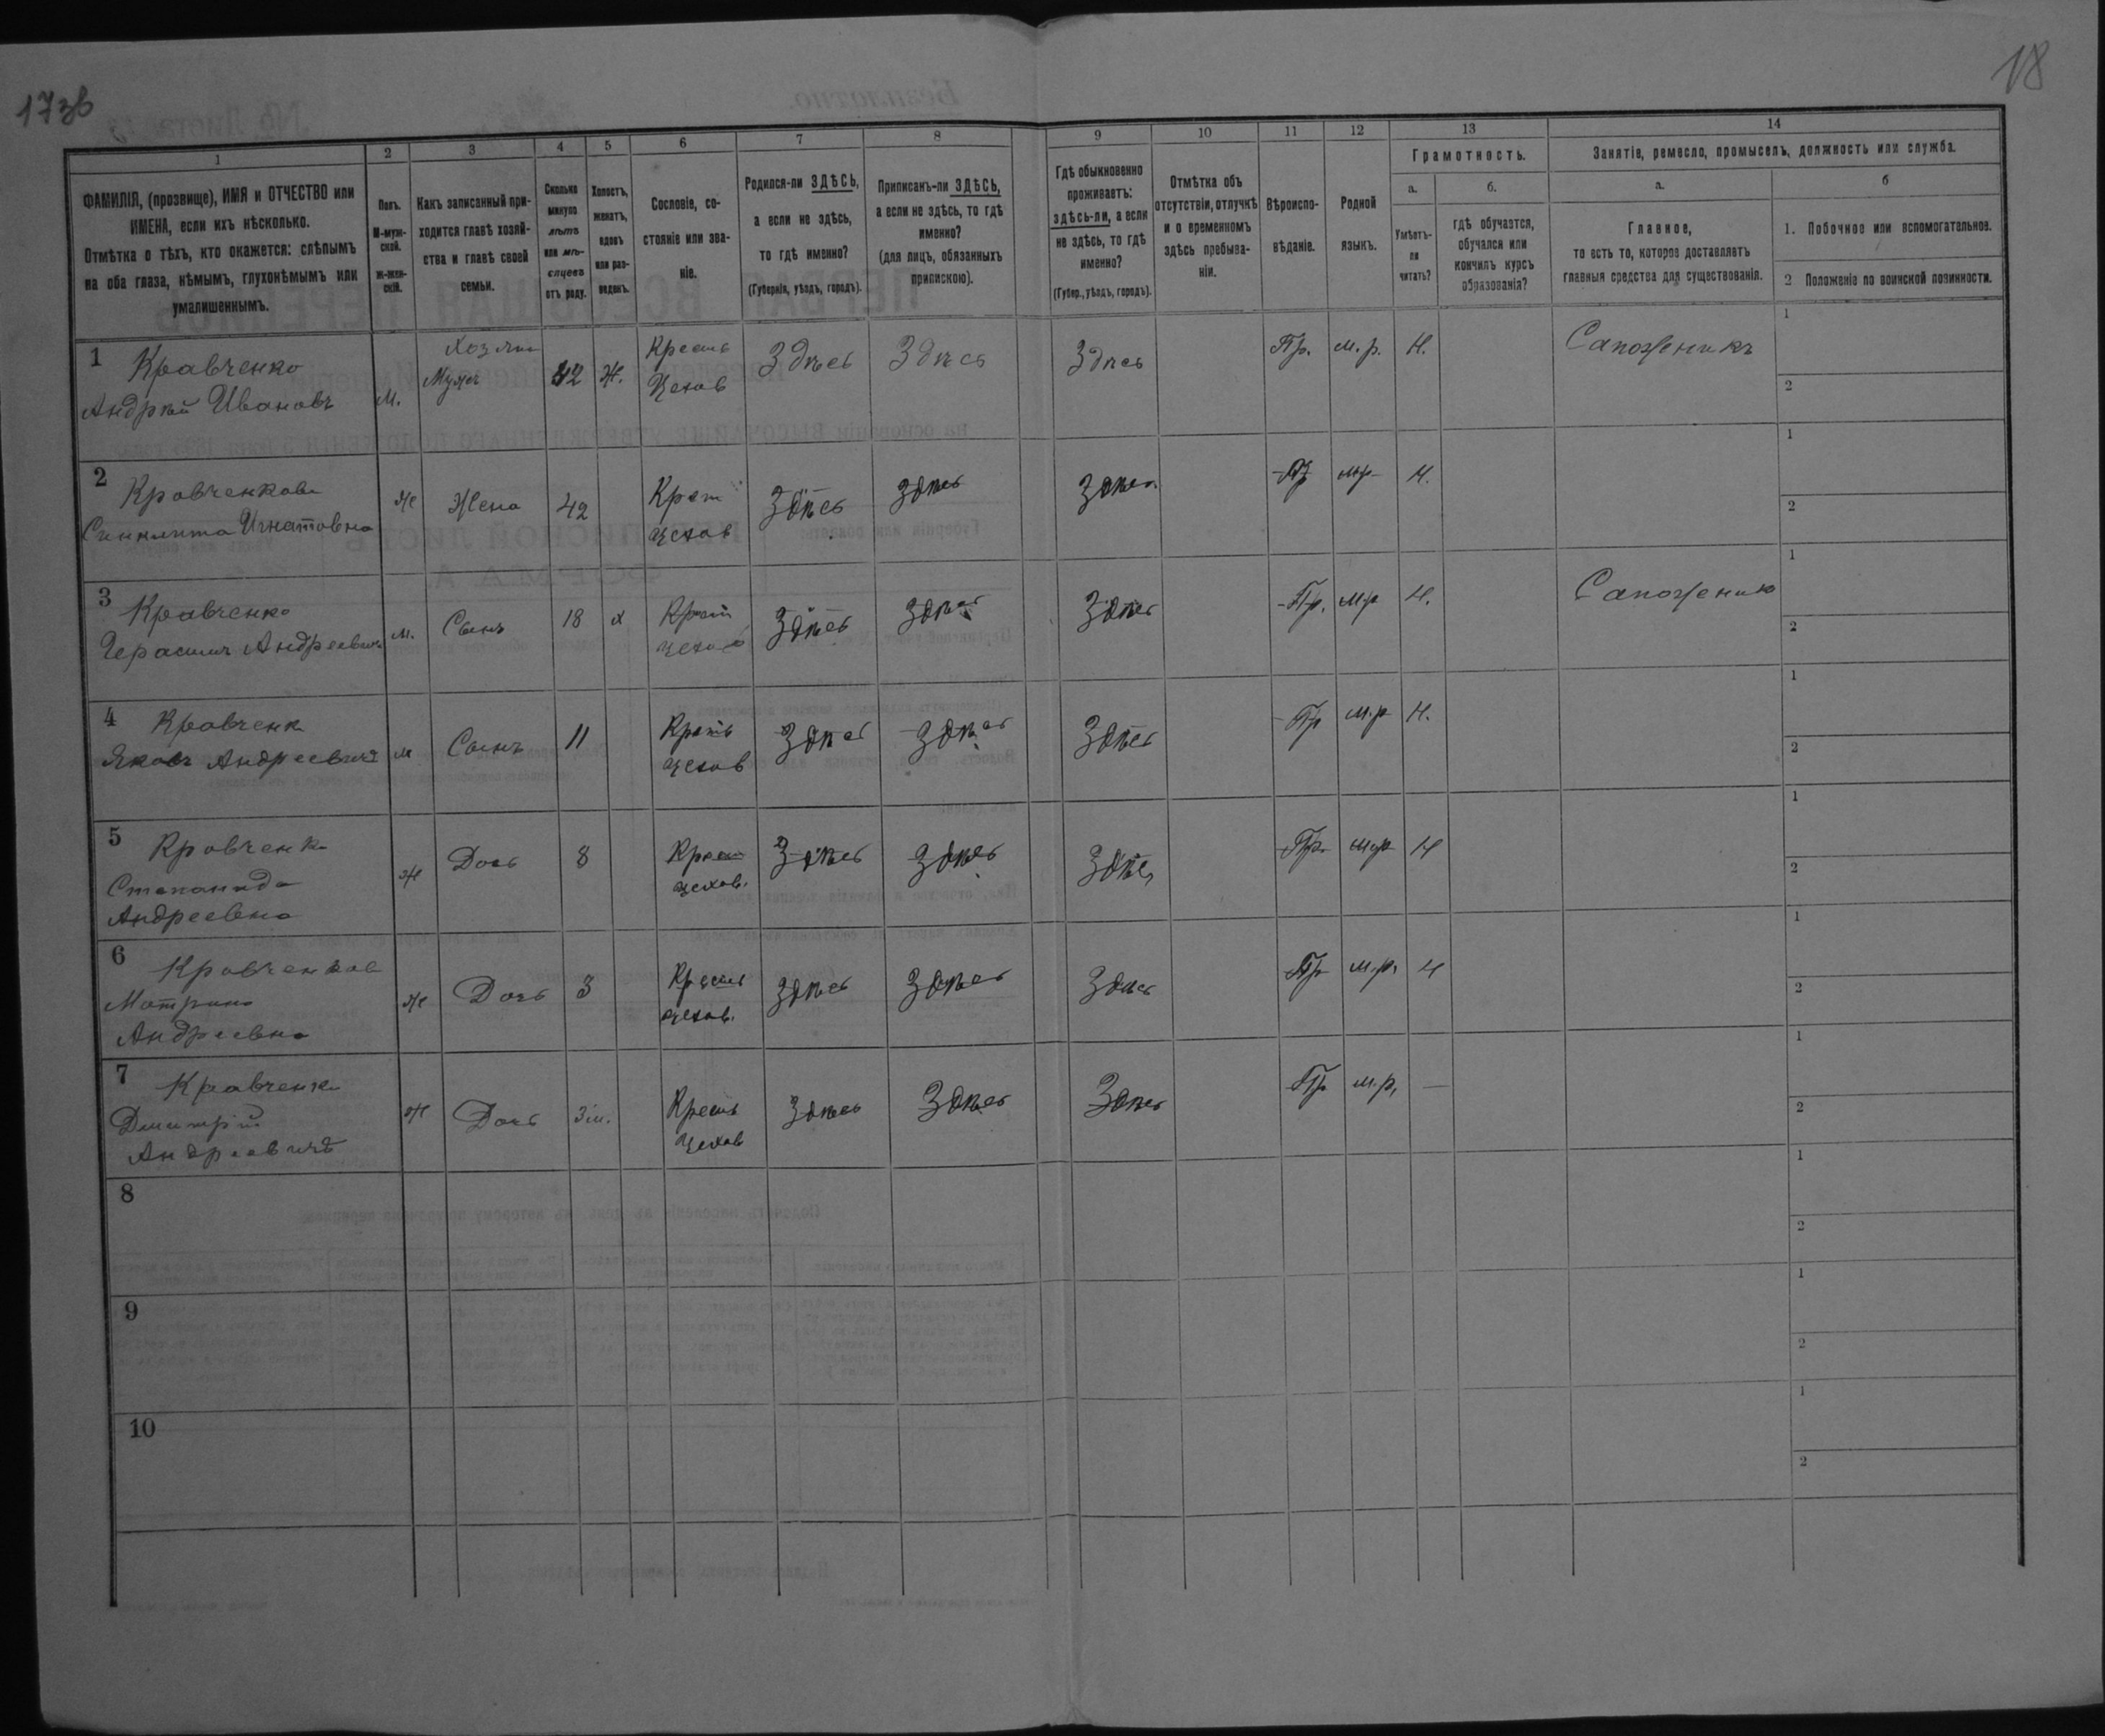 173б
18
1
2
3
4
5
6
7
8
9
10
11
12
13
14
ФАМИЛІЯ, (прозвище), ИМЯ и ОТЧЕСТВО или
ИМЕНА, если ихъ нѣсколько.
Отмѣтка о тѣхъ, кто окажется: слѣпымъ
на оба глаза, нѣмымъ, глухонѣмымъ или
умалишеннымъ.
Полъ.
М-муж-
ской.
Ж-жен-
скій.
Какъ записанный при-
ходится главѣ хозяй-
ства и главѣ своей
семьи.
Сколько
минуло
лѣтъ
или мѣ-
сяцевъ
отъ роду.
Холостъ,
женатъ,
вдовъ
или раз-
веденъ.
Сословіе, со-
стояніе или зва-
ніе.
Родился-ли ЗДѢСЬ,
а если не здѣсь,
то гдѣ именно?
(Губернія, уѣздъ, городъ).
Приписанъ-ли ЗДѢСЬ,
а если не здѣсь, то гдѣ
именно?
(для лицъ, обязанныхъ
припискою).
Гдѣ обыкновенно
проживаетъ:
здѣсь-ли, а если
не здѣсь, то гдѣ
именно?
(Губер., уѣздъ, городъ).
Отмѣтка объ
отсутствіи, отлучкѣ
и о временномъ
здѣсь пребыва-
ніи.
Вѣроиспо-
вѣданіе.
Родной
языкъ.
Грамотность.
а.
Умѣетъ-
ли
читать?
б.
гдѣ обучается,
обучался или
кончилъ курсъ
образованія?
Занятіе, ремесло, промыселъ, должность или служба.
а.
Главное,
то есть то, которое доставляетъ
главныя средства для существованія.
б
1. Побочное или вспомогательное.
2 Положеніе по воинской повинности.
1 Кравченко
Андрѣй Ивановъ
М.
Хозяинъ
Мужъ
42
Ж.
Кресть
Здѣсь
Здѣсь
Здѣсь
Пр.
м. р.
Н.
Сапожникъ
1
2
2 Кравченкова
Синклита Игнатовна
Ж
Жена
42
Крест
Здѣсь
Здѣсь
Здѣсь
Пр
мр
Н.
1
2
3 Кравченко
Герасимъ Андреевичъ
м.
Сынъ
18
х
Крест
Здѣсь
Здѣсь
Здѣсь
Пр.
мр
Н.
Сапожник
1
2
4 Кравченк
Яковъ Андреевичъ
м
Сынъ
11
Кресть
Здѣсь
Здѣсь
Здѣсь
Пр
м.р
Н.
1
2
5 Кравченк
Степанида
Андреевна
ж
Дочь
8
Крест
Здѣсь
Здѣсь
Здѣсь
Пр.
мр
Н
1
2
6 Кравченков
Матрина
Андреевна
ж
Дочь
3
Кресть
Здѣсь
Здѣсь
Здѣсь
Пр
м.р.
Н
1
2
7 Кравченк
Дмитрій
Андреевичъ
ж
Дочь
3 м.
Кресть
Здѣсь
Здѣсь
Здѣсь
Пр
м.р.
—
1
2
8
1
2
9
1
2
10
1
2